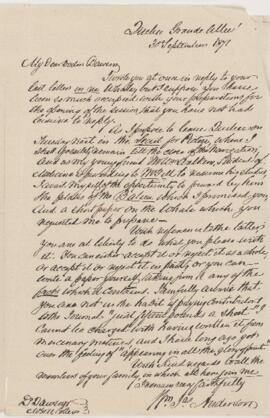 Quebec Grande Allée
30 September 1871
My Dear Doctor Dawson,
I wrote you at once in reply to your
last letters in re Whales, but I suppose you have
been so much occupied with your preparations for
the opening of the Session that you have not had
leisure to reply.
As I purpose to leave Quebec on
Tuesday next in the for, where I
shall possibly remain till the close of the navigation,
and as my young friend, Student of
Medicine is proceeding to McGill to resume his studies,
I avail myself of the opportunity to forward by him
the photos of the which I promised you,
and a short paper on the Whale which you
requested me to prepare.
With reference to the latter,
you are at liberty to do what you please with
it. You can either accept it or reject it as a whole,
or accept it or reject it in part, or you can
write a paper yourself taking from it any of the
facts which it contains. I am fully aware that
you are not in the habit of paying contributors
to the Journal, "just a short"
I cannot be charged with having written it from
mercenary motives, and I have long ago got
over the feeling of "appearing in all the glory of print".
With kind regards to all the
members of your family, in which all here join me
I remain very faithfully
Wm. Jas. Anderson
Dr Dawson